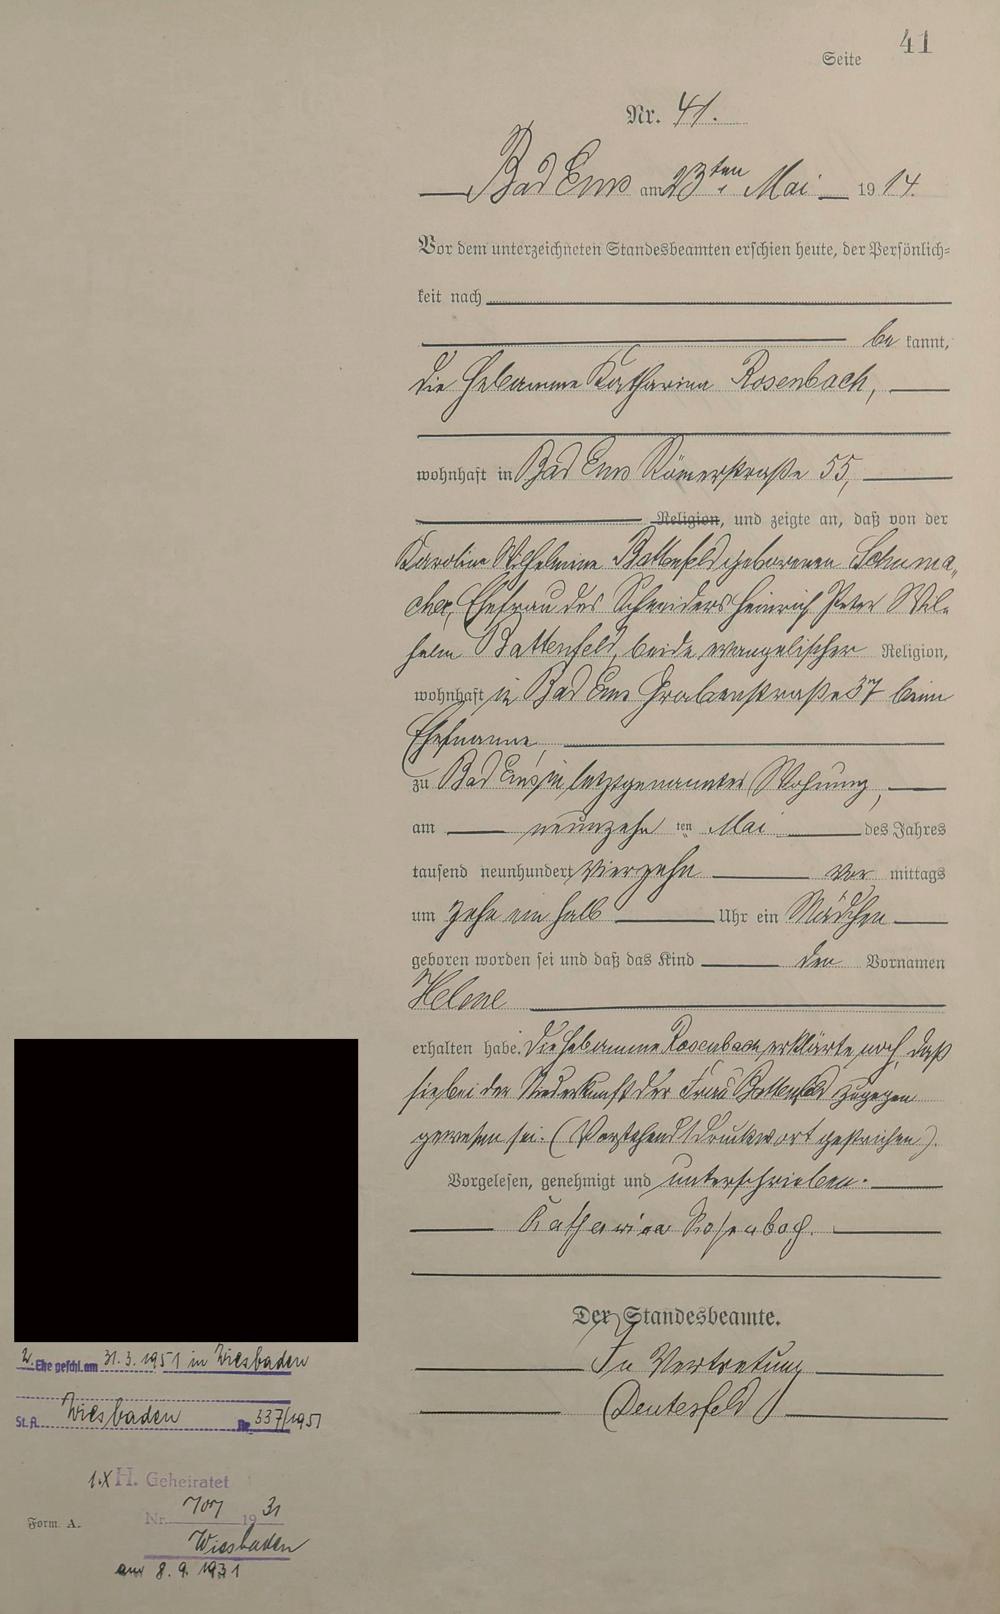 Seite 41
Nr. 41.
Bad Ems am 23ten Mai 1914.
Vor dem unterzeichneten Standesbeamten erschien heute, der Persönlich-
keit nach
be kannt,
die Hebamme Katharina Rosenbach,
wohnhaft in Bad Ems Römerstraße 55,
Religion, und zeigte an, daß von der
Karoline Wilhelmine Battenfeld geborenen Schuma-
cher, Ehefrau des Schneiders Heinrich Peter Wil-
helm Battenfeld, beide evangelischer Religion,
wohnhaft in Bad Ems Grabenstraße 37 beim
Ehemanne,
zu Bad Ems, in letztgenannter Wohnung,
am neunzehn ten Mai des Jahres
tausend neunhundert vierzehn vor mittags
um zehn ein halb Uhr ein Mädchen
geboren worden sei und daß das Kind den Vornamen
Helene
erhalten habe. Die Hebamme Rosenbach erklärte noch, daß
sie bei der Niederkunft der Frau Battenfeld zugegen
gewesen sei. (Vorstehend 1 Druckwort gestrichen).
Vorgelesen, genehmigt und unterschrieben.
Katharina Rosenbach.
Der Standesbeamte.
In Vertretung
2. Ehe geschl. am 31.3.1951 in Wiesbaden
St.A. Wiesbaden Nr. 337/1951
1.X H. Geheiratet
Nr. 707 1931
Wiesbaden
am 8.9.1931
Form. A.